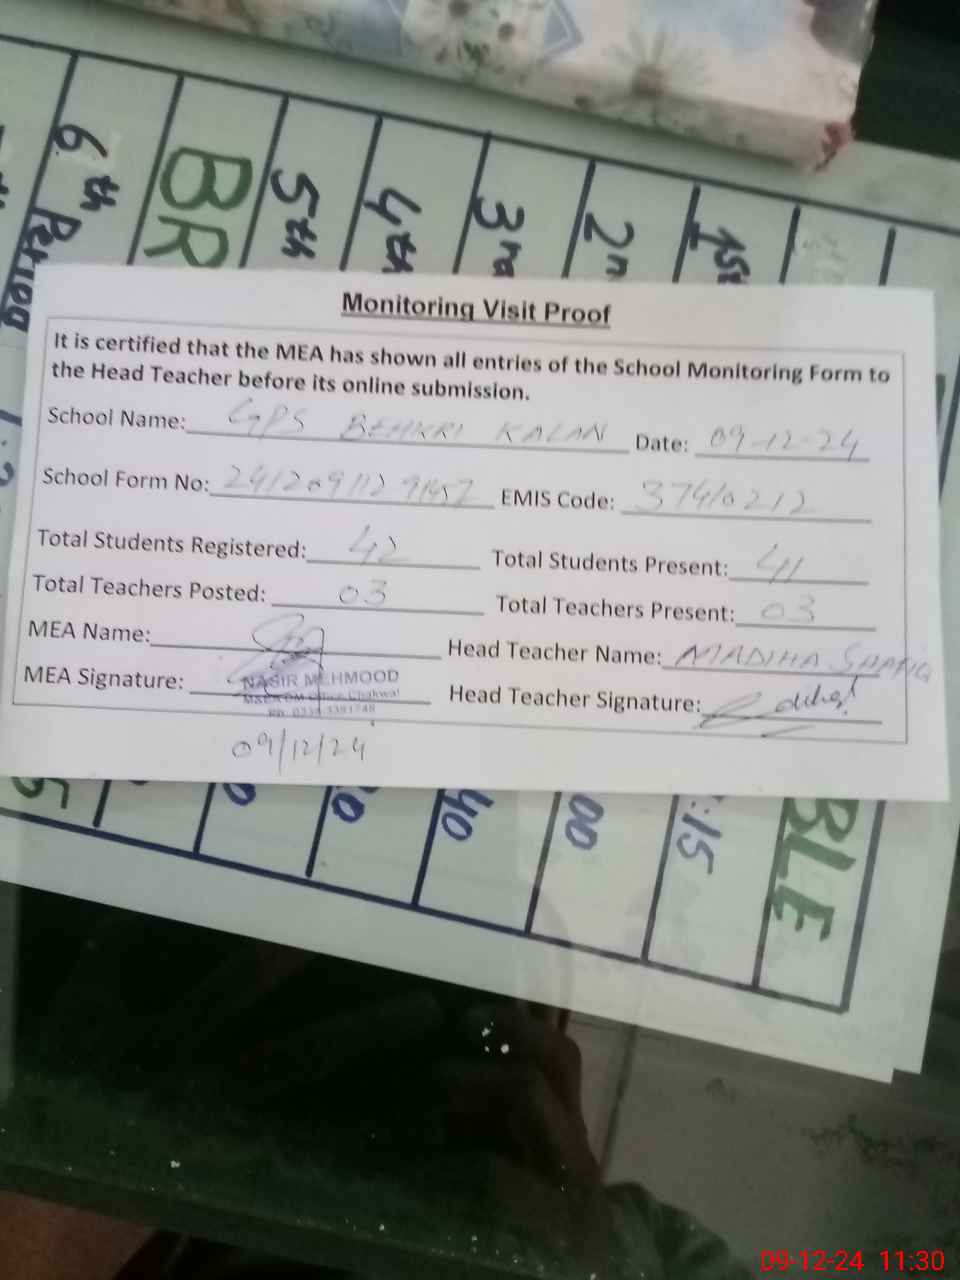 6th Period
BR
5th
4th
3rd
2n
1st
Monitoring Visit Proof
It is certified that the MEA has shown all entries of the School Monitoring Form to
the Head Teacher before its online submission.
School Name: GPS BEHKRI KALAN Date: 09-12-24
School Form No: EMIS Code: 37410212
Total Students Registered: 42 Total Students Present: 41
Total Teachers Posted: 03 Total Teachers Present: 03
MEA Name: Head Teacher Name: MADIHA SHAFIQ
MEA Signature: NASIR MEHMOOD Head Teacher Signature:
Chakwal
09/12/24
40
00
:15
BLE
09-12-24 11:30